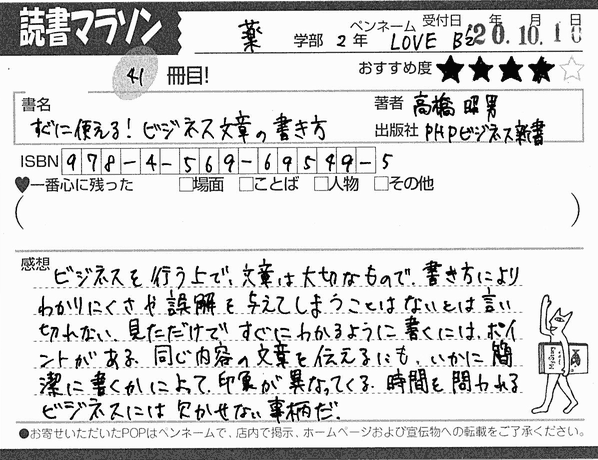 読書マラソン
薬 学部 2年 ペンネーム LOVE B'z 受付日 20.10.10 年 月 日
41 冊目!
おすすめ度 ★★★★☆
書名 すぐに使える!ビジネス文章の書き方
著者 高橋 昭男
出版社 PHPビジネス新書
ISBN 978-4-569-69549-5
♥一番心に残った □場面 □ことば □人物 □その他
( )
感想
ビジネスを行う上で、文章は大切なもので、書き方により
わかりにくさや誤解を与えてしまうことはないとは言い
切れない。見ただけですぐにわかるように書くには、ポイ
ントがある。同じ内容の文章を伝えるにも、いかに簡
潔に書くかによって、印象が異なってくる。時間を問われる
ビジネスには欠かせない事柄だ。
●お寄せいただいたPOPはペンネームで、店内で掲示、ホームページおよび宣伝物への転載をご了承ください。